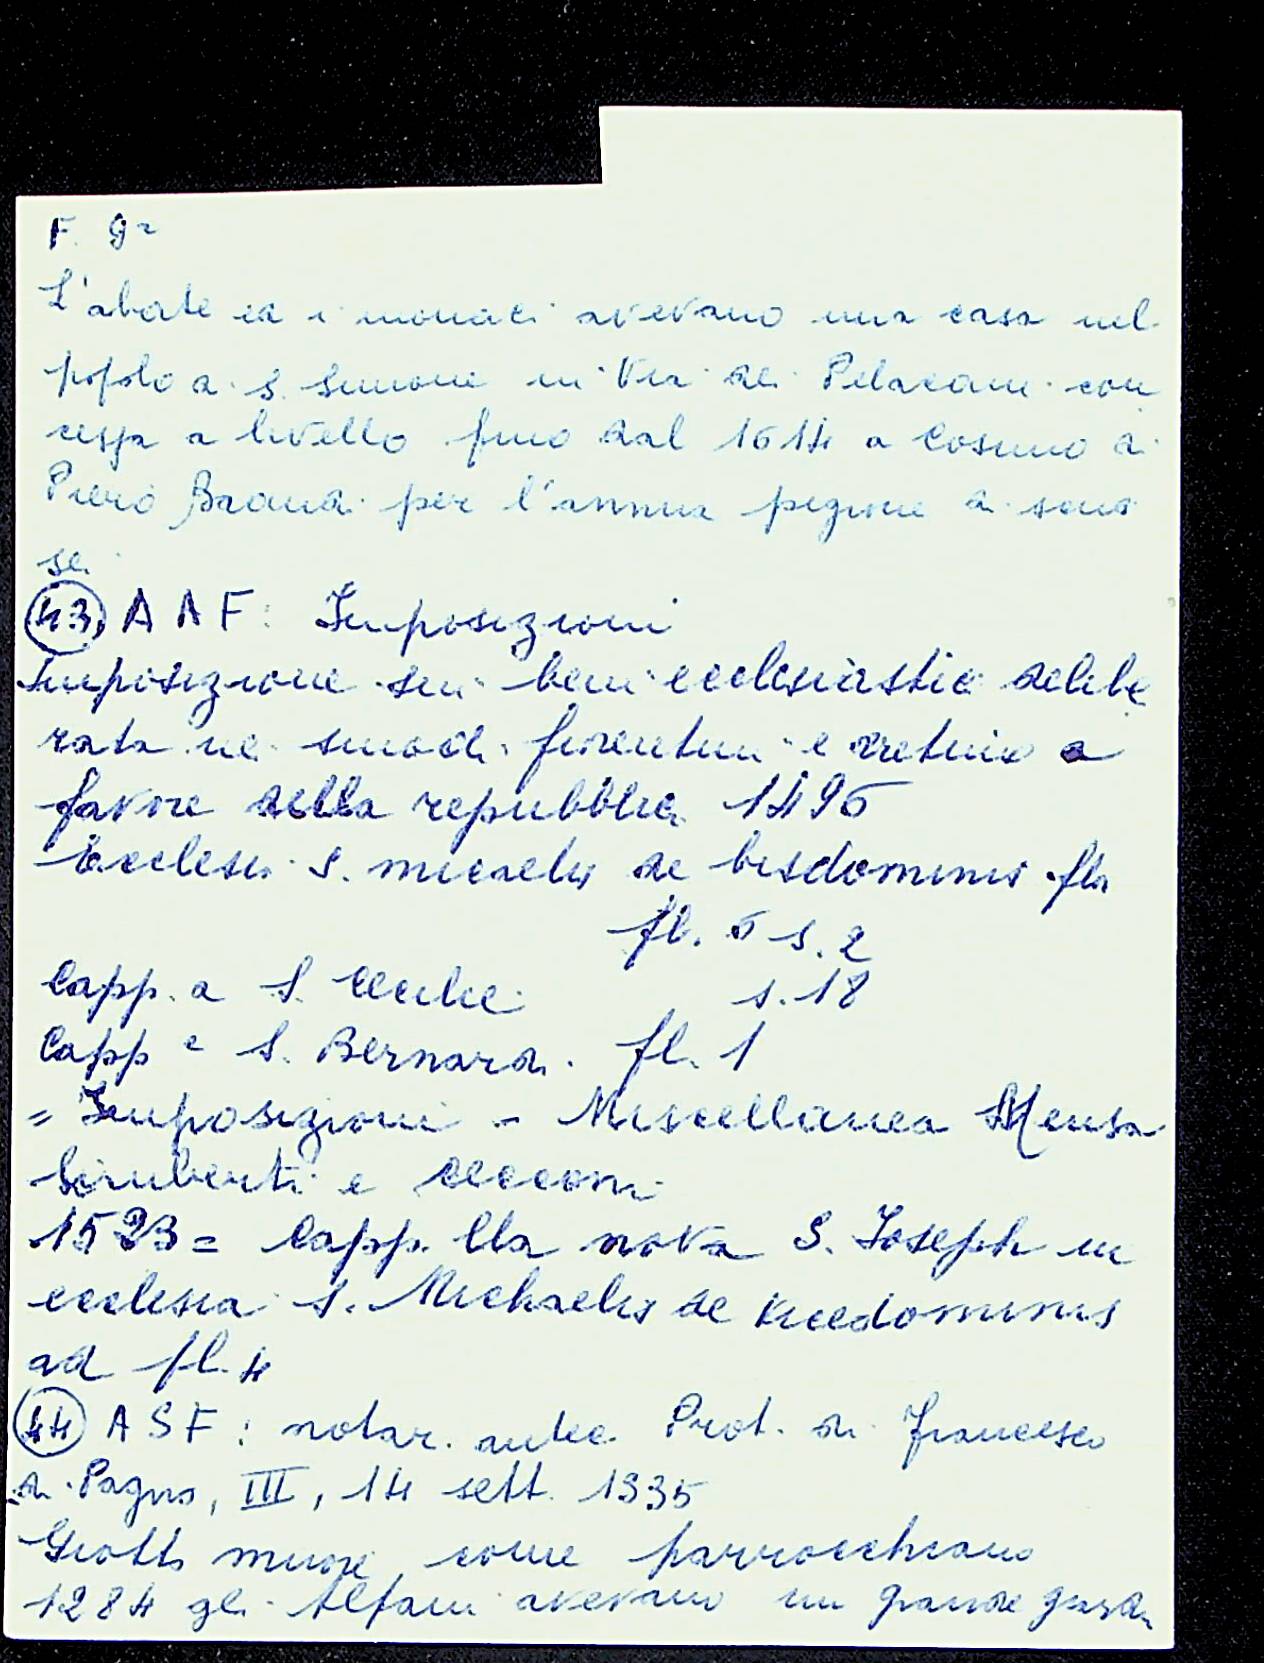 F. 92
L'abate ed i monaci avevano una casa nel
popolo di S. Simone in Via dei Pelacani con
cessa a livello fino dal 1614 a Cosimo di
Piero Brandi per l'annua pigione di scudi
sei
43, A A F: Imposizioni
Imposizione sui beni ecclesiastici delibe
rata nei sinodi fiorentini e aretino a
favore della repubblica 1495
Ecclesi S. Micaelis de bisdominis fl
fl. 5 s. 2
Capp. a S. Cecilie s. 18
Capp e S. Bernardi. fl. 1
= Imposizioni - Miscellanea Mensa
e Cecconi
1523 = Capp. lla nova S. Joseph in
ecclesia S. Michaelis de Vicedominis
ad fl. 4
44 A S F: notar. antec. Prot. di Francesco
di Pagno, III, 14 sett. 1335
Giotto muore come parrocchiano
1284 gli Alfani avevano un grande giardi